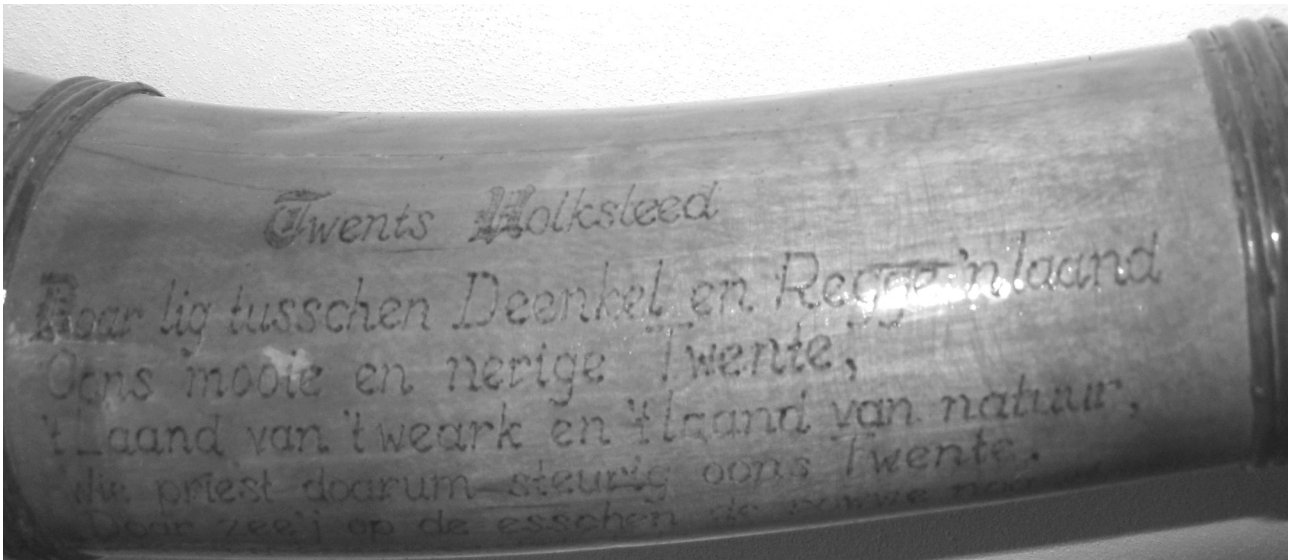 Twents Volksleed
Doar lig tusschen Deenkel en Regge 'n laand
Oons mooie en nerige Twente,
't Laand van 't weark en 't laand van natuur,
die priest doarum steurig oons Twente.
Doar zee'j op de esschen de